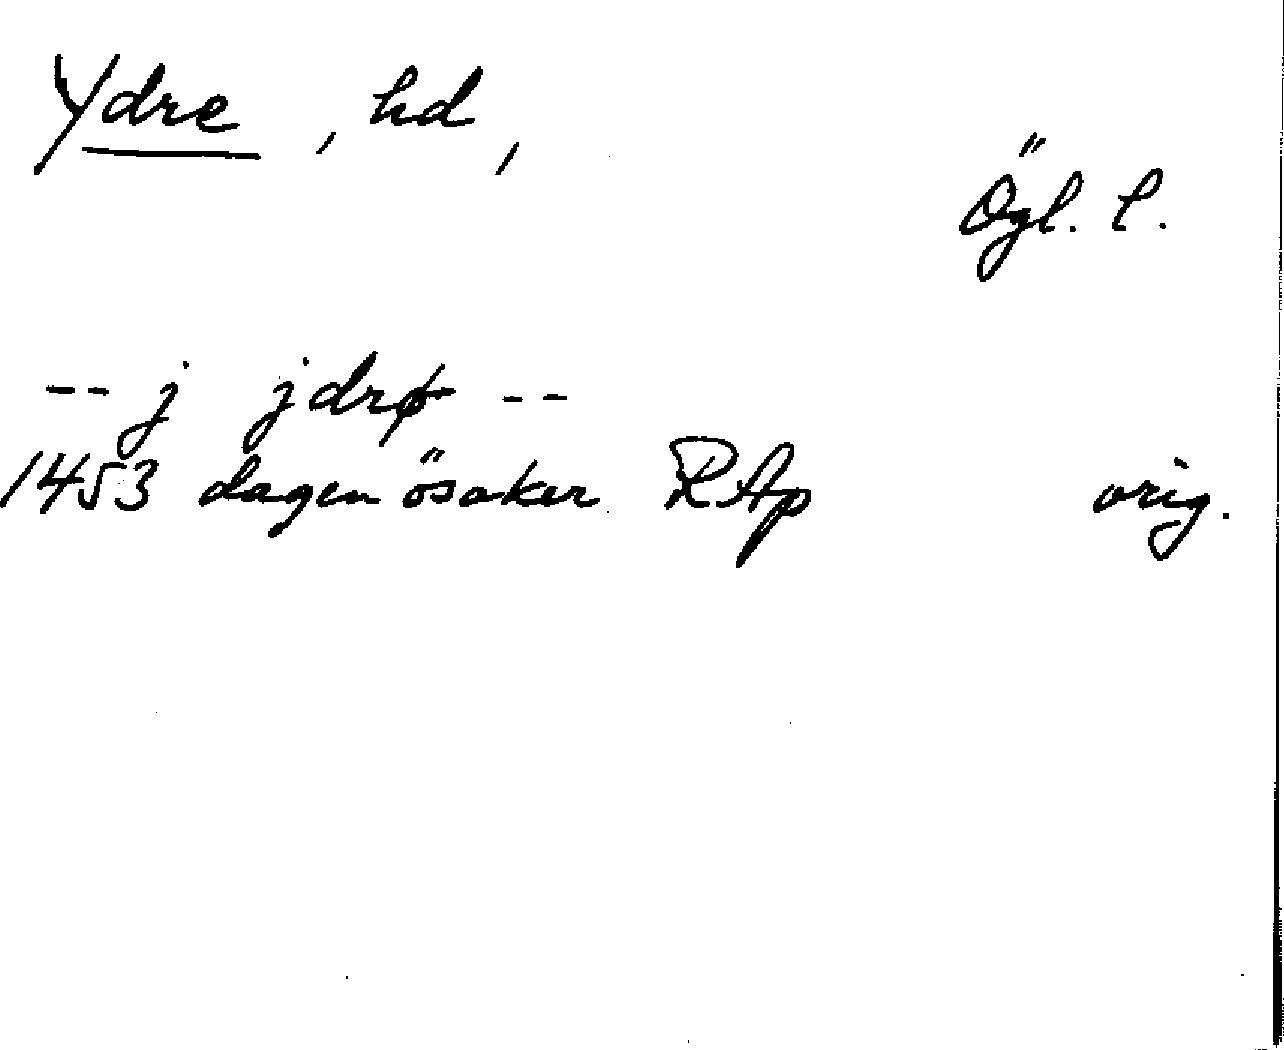 Ydre, hd,
Ögl. l.
-- j jdrø --
1453 dagen ösaker RAp orig.